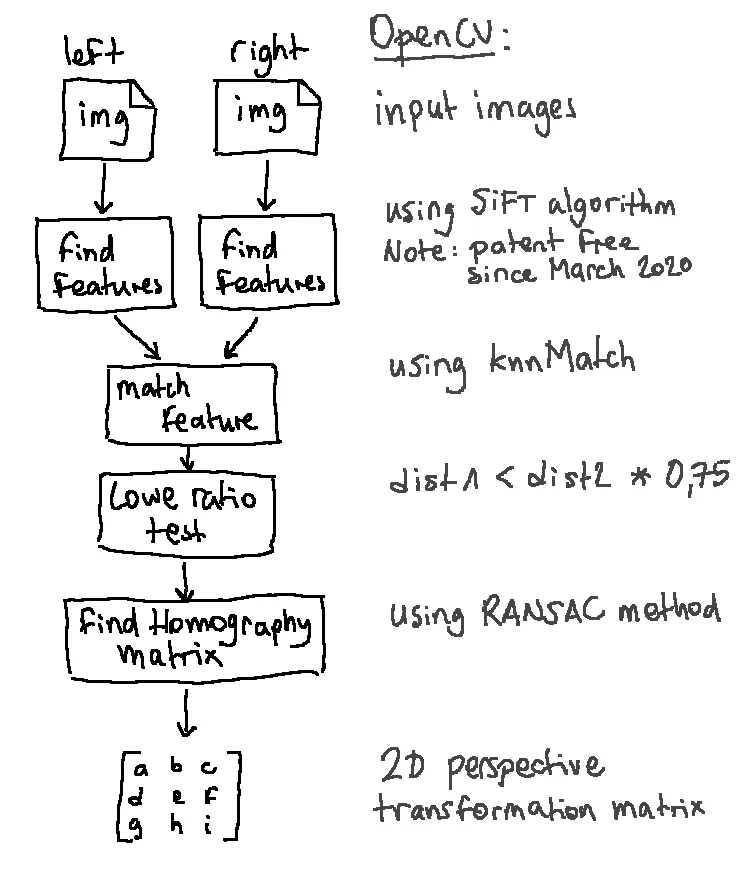 left
right
OpenCV:
img
img
input images
find
features
find
features
using SiFT algorithm
Note: patent free
since March 2020
match
feature
using knnMatch
Lowe ratio
test
dist1 < dist2 * 0,75
find Homography
matrix
using RANSAC method
a b c
d e f
g h i
2D perspective
transformation matrix